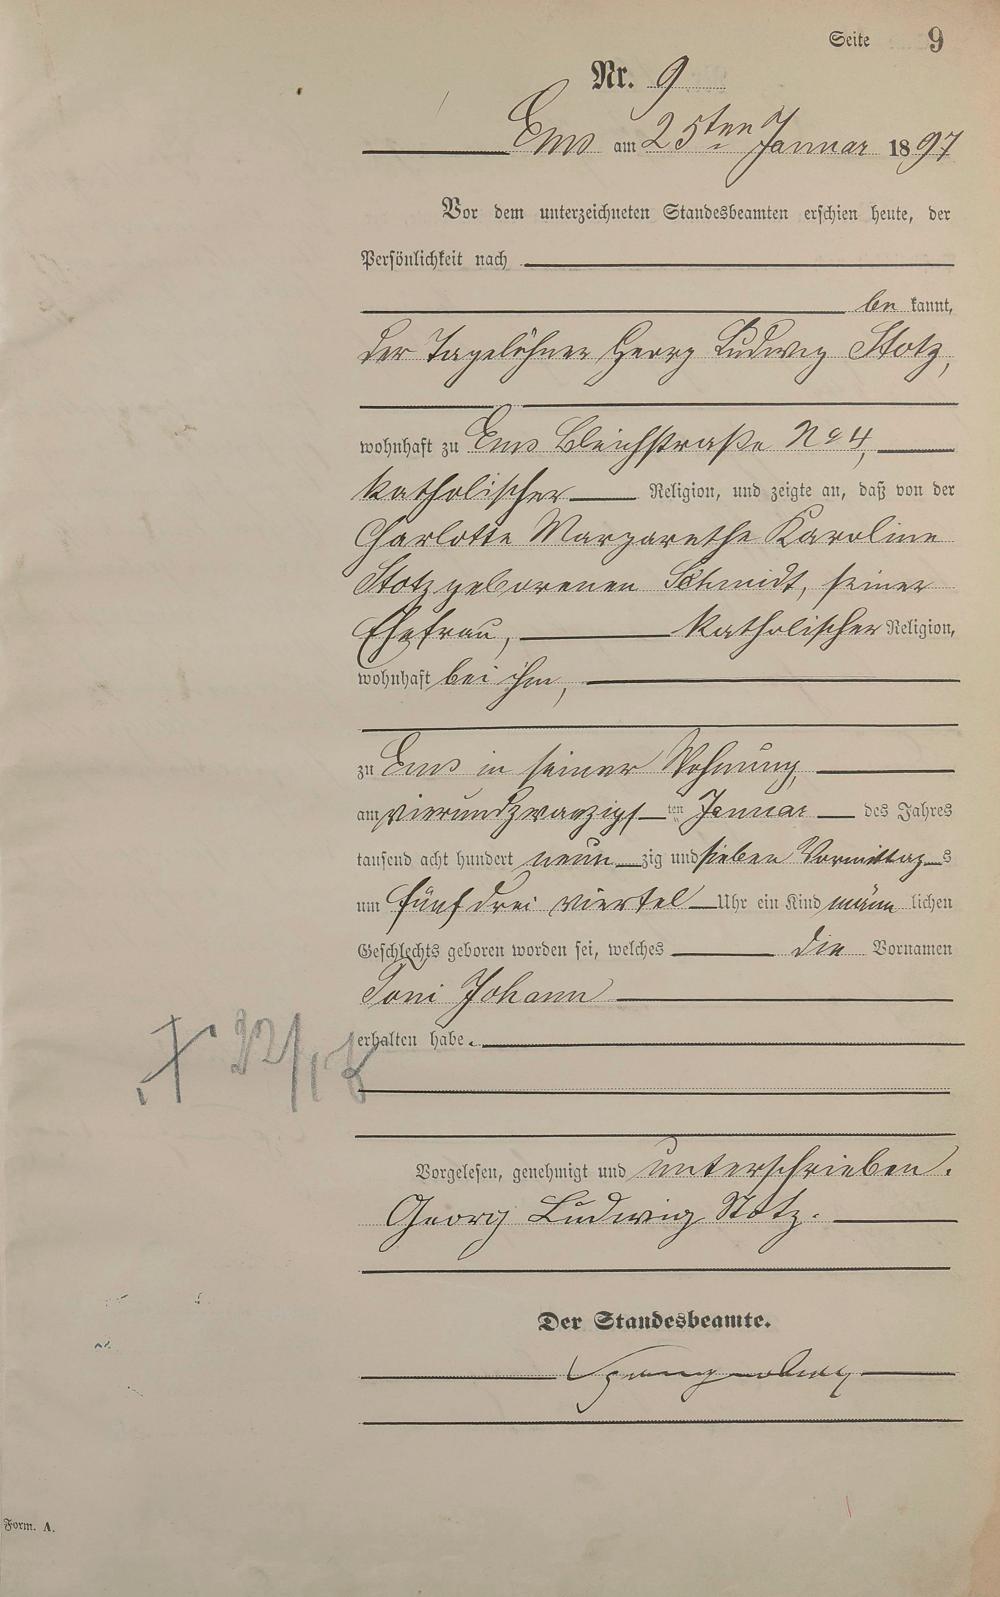 Seite 9
Nr. 9
Ems am 25ten Januar 1897
Vor dem unterzeichneten Standesbeamten erschien heute, der
Persönlichkeit nach
be kannt,
der Tagelöhner Georg Ludwig Stotz,
wohnhaft zu Ems Bleichstraße No 4,
katholischer Religion, und zeigte an, daß von der
Charlotte Margarethe Karoline
Stotz geborenen Schmidt, seiner
Ehefrau, katholischer Religion,
wohnhaft bei ihm,
zu Ems in seiner Wohnung,
am vierundzwanzigsten Januar des Jahres
tausend acht hundert neun zig und sieben Vormittag s
um fünf drei viertel Uhr ein Kind männ lichen
Geschlechts geboren worden sei, welches die Vornamen
Toni Johann
erhalten habe.
Vorgelesen, genehmigt und unterschrieben.
Georg Ludwig Stotz.
Der Standesbeamte.
Form. A.